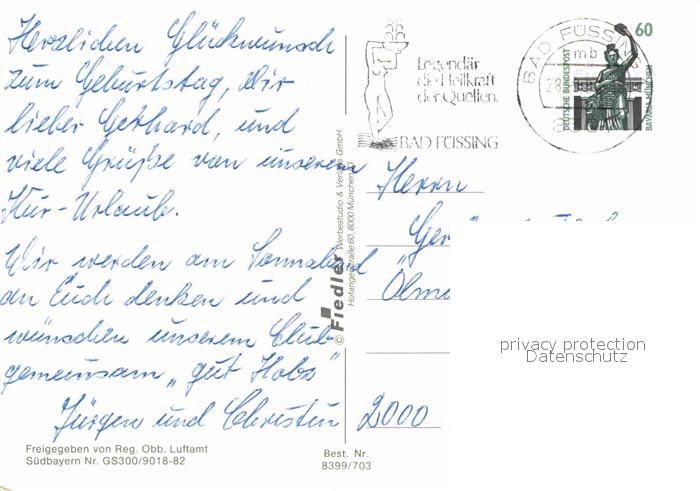 Herzlichen Glückwunsch
zum Geburtstag, Dir
lieber Gerhard, und
viele Grüße von unserem
Kur-Urlaub.
Wir werden am Sonnabend
an Euch denken und
wünschen unserem Club
gemeinsam „gut Holz"
Jürgen und Christin
Freigegeben von Reg. Obb. Luftamt
Südbayern Nr. GS300/9018-82
© Fiedler Werbestudio & Verlags GmbH
Best. Nr.
8399/703
Legendär
die Heilkraft
der Quellen.
BAD FÜSSING
BAD FÜSSING
mb
60
DEUTSCHE BUNDESPOST
BAVARIA MÜNCHEN
Herrn
Ger
2000
privacy protection
Datenschutz